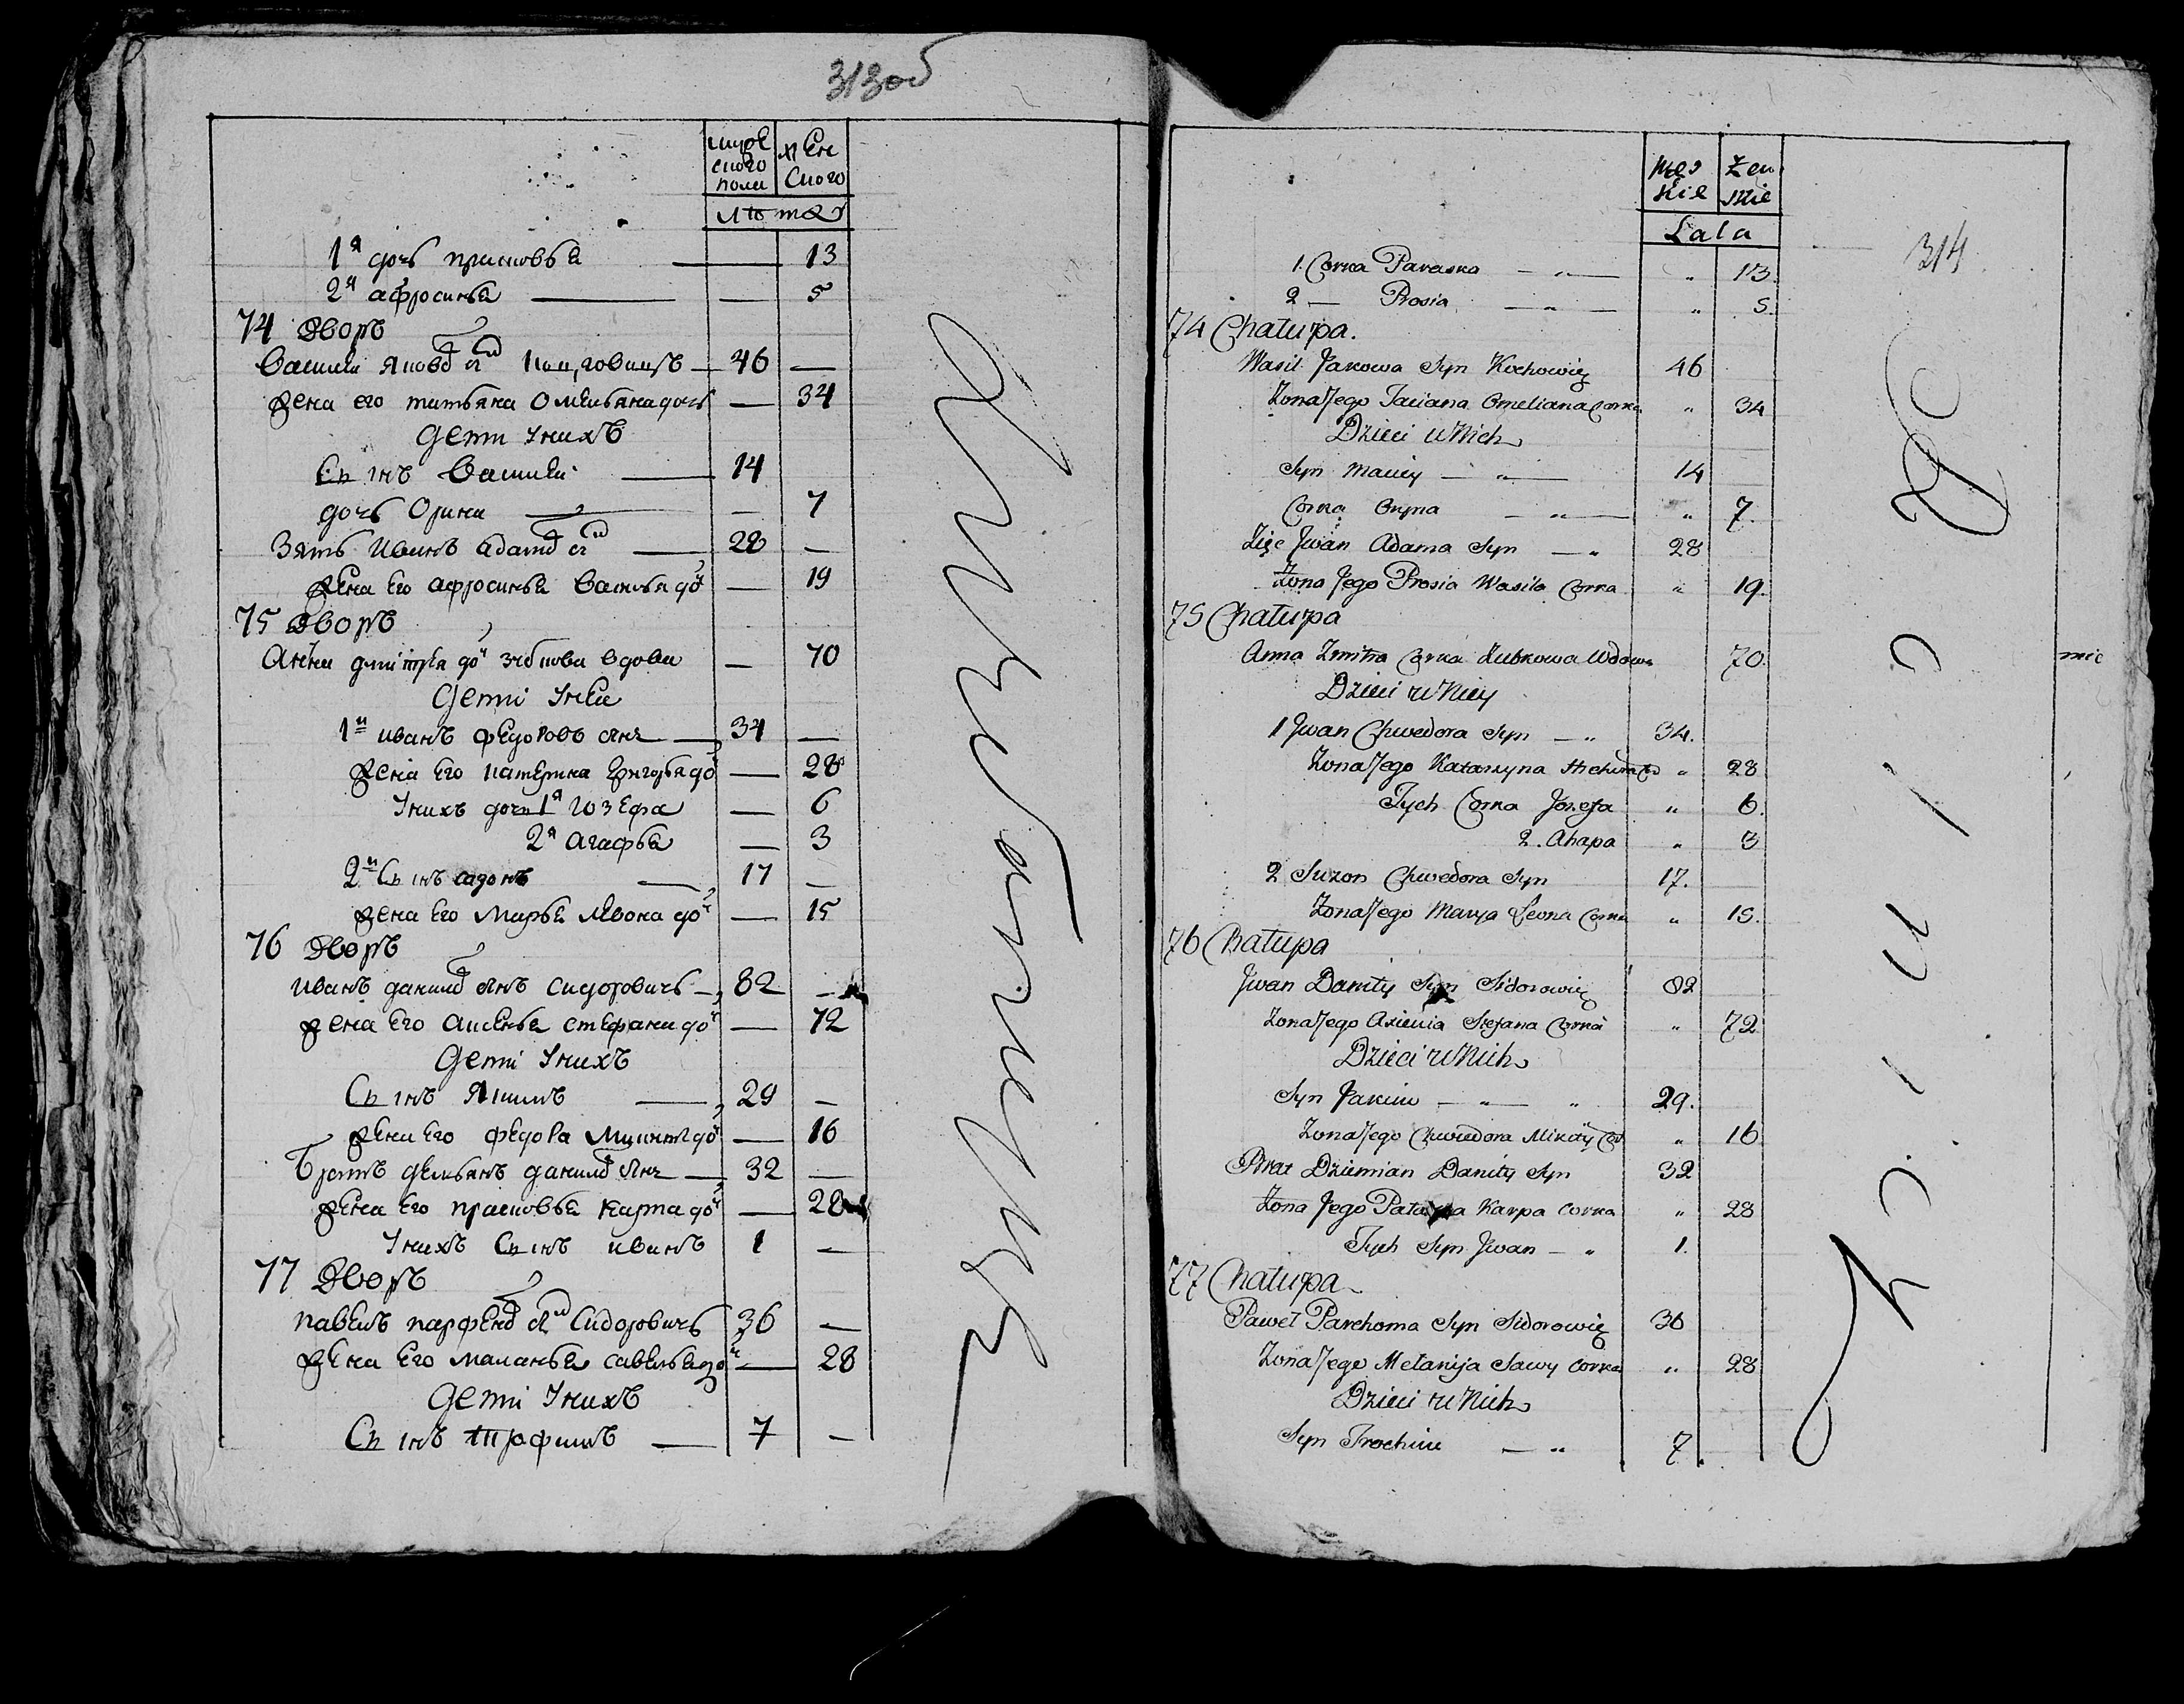 313об
муже
ского
пола
жен
ского
лѣта
1я дочь прасковья 13
2я афросинья 5
74 Дворъ
Василий Яковл сн 46
жена его татьяна Омельяна дочь 34
дети у них
Сынъ Василий 14
дочь Орина 7
Зять Иванъ адамов сн 28
жена его афросинья Василья до 19
75 Дворъ
Анна дмитрея доч зубкова вдова 70
дети у неи
1й иванъ федоровъ снъ 34
жена его катерина григорья до 28
у нихъ дочь 1я Юзефа 6
2я агафья 3
2й Сынъ садонъ 17
жена его Марья Левона доч 15
76 Дворъ
иванъ данила снъ сидоровичь 82
жена его аксенья стефана доч 72
дети у нихъ
Сынъ Якимъ 29
жена его федора Микиты доч 16
Братъ демьянъ данила снъ 32
жена его прасковья карпа доч 28
у нихъ Сынъ иванъ 1
77 Дворъ
павелъ парфена сн Сидоровичь 36
жена его маланья савелья доч 28
дети у нихъ
Сынъ трофимъ 7
Męs
kie
Żen
skie
Lata
314
1. Corka Paraska " 13.
2 — Prosia " 5.
74 Chałupa.
Wasil Jakowa Syn Kochowicz 46
Zona Jego Taciana Omeliana Corka " 34
Dzieci u Nich
Syn Maciey 14
Corka Oryna " 7.
Zięc Jwan Adama Syn 28
Zona Jego Prosia Wasila Corka " 19.
75 Chałupa
Anna Zmitra Corka Zubkowa Wdowa 70.
Dzieci u Niey
1 Jwan Chwedora Syn 34.
Zona Jego Katarzyna " 28
Tych Corka Jozefa " 6.
2. Ahapa " 3
2 Suzon Chwedora Syn 17.
Zona Jego Marya Leona Corka " 15.
76 Chałupa
Jwan Daniły Syn Sidorowicz 82
Zona Jego Axienia Stefana Corka " 72
Dzieci u Nich
Syn Jakim 29.
Zona Jego Chwedora Mikity Cor " 16
Brat Dziemian Daniły Syn 32
Zona Jego Karpa Corka " 28
Tych Syn Jwan 1.
77 Chałupa
Paweł Parchoma Syn Sidorowicz 36
Zona Jego Melanija Sawy Corka " 28
Dzieci u Nich
Syn Trochim 7.